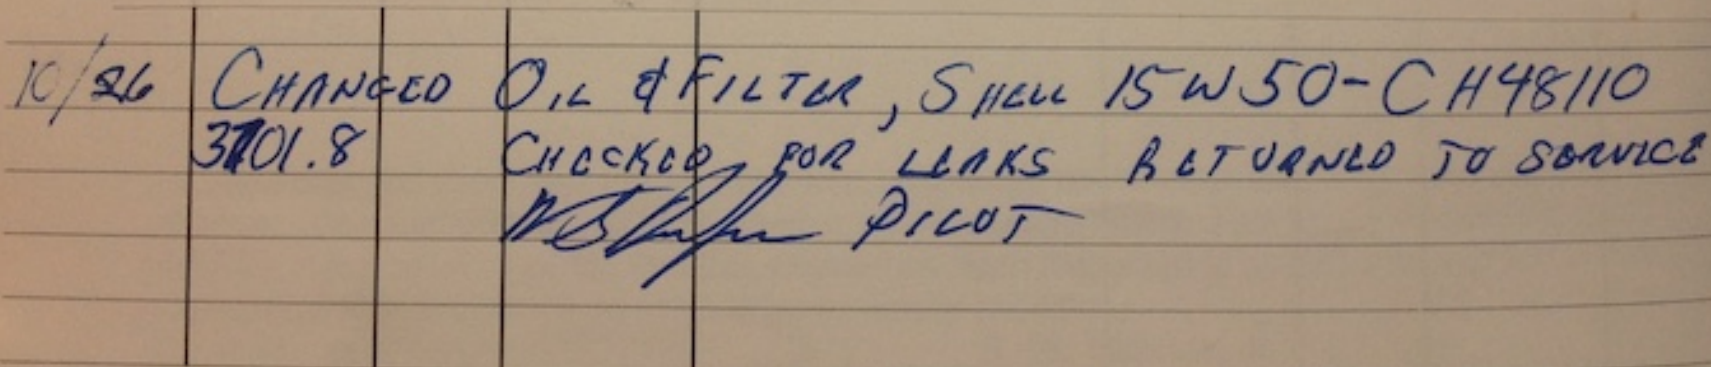 10/26 CHANGED OIL & FILTER, SHELL 15W50-CH48110
3701.8 CHECKED FOR LEAKS RETURNED TO SERVICE
PILOT